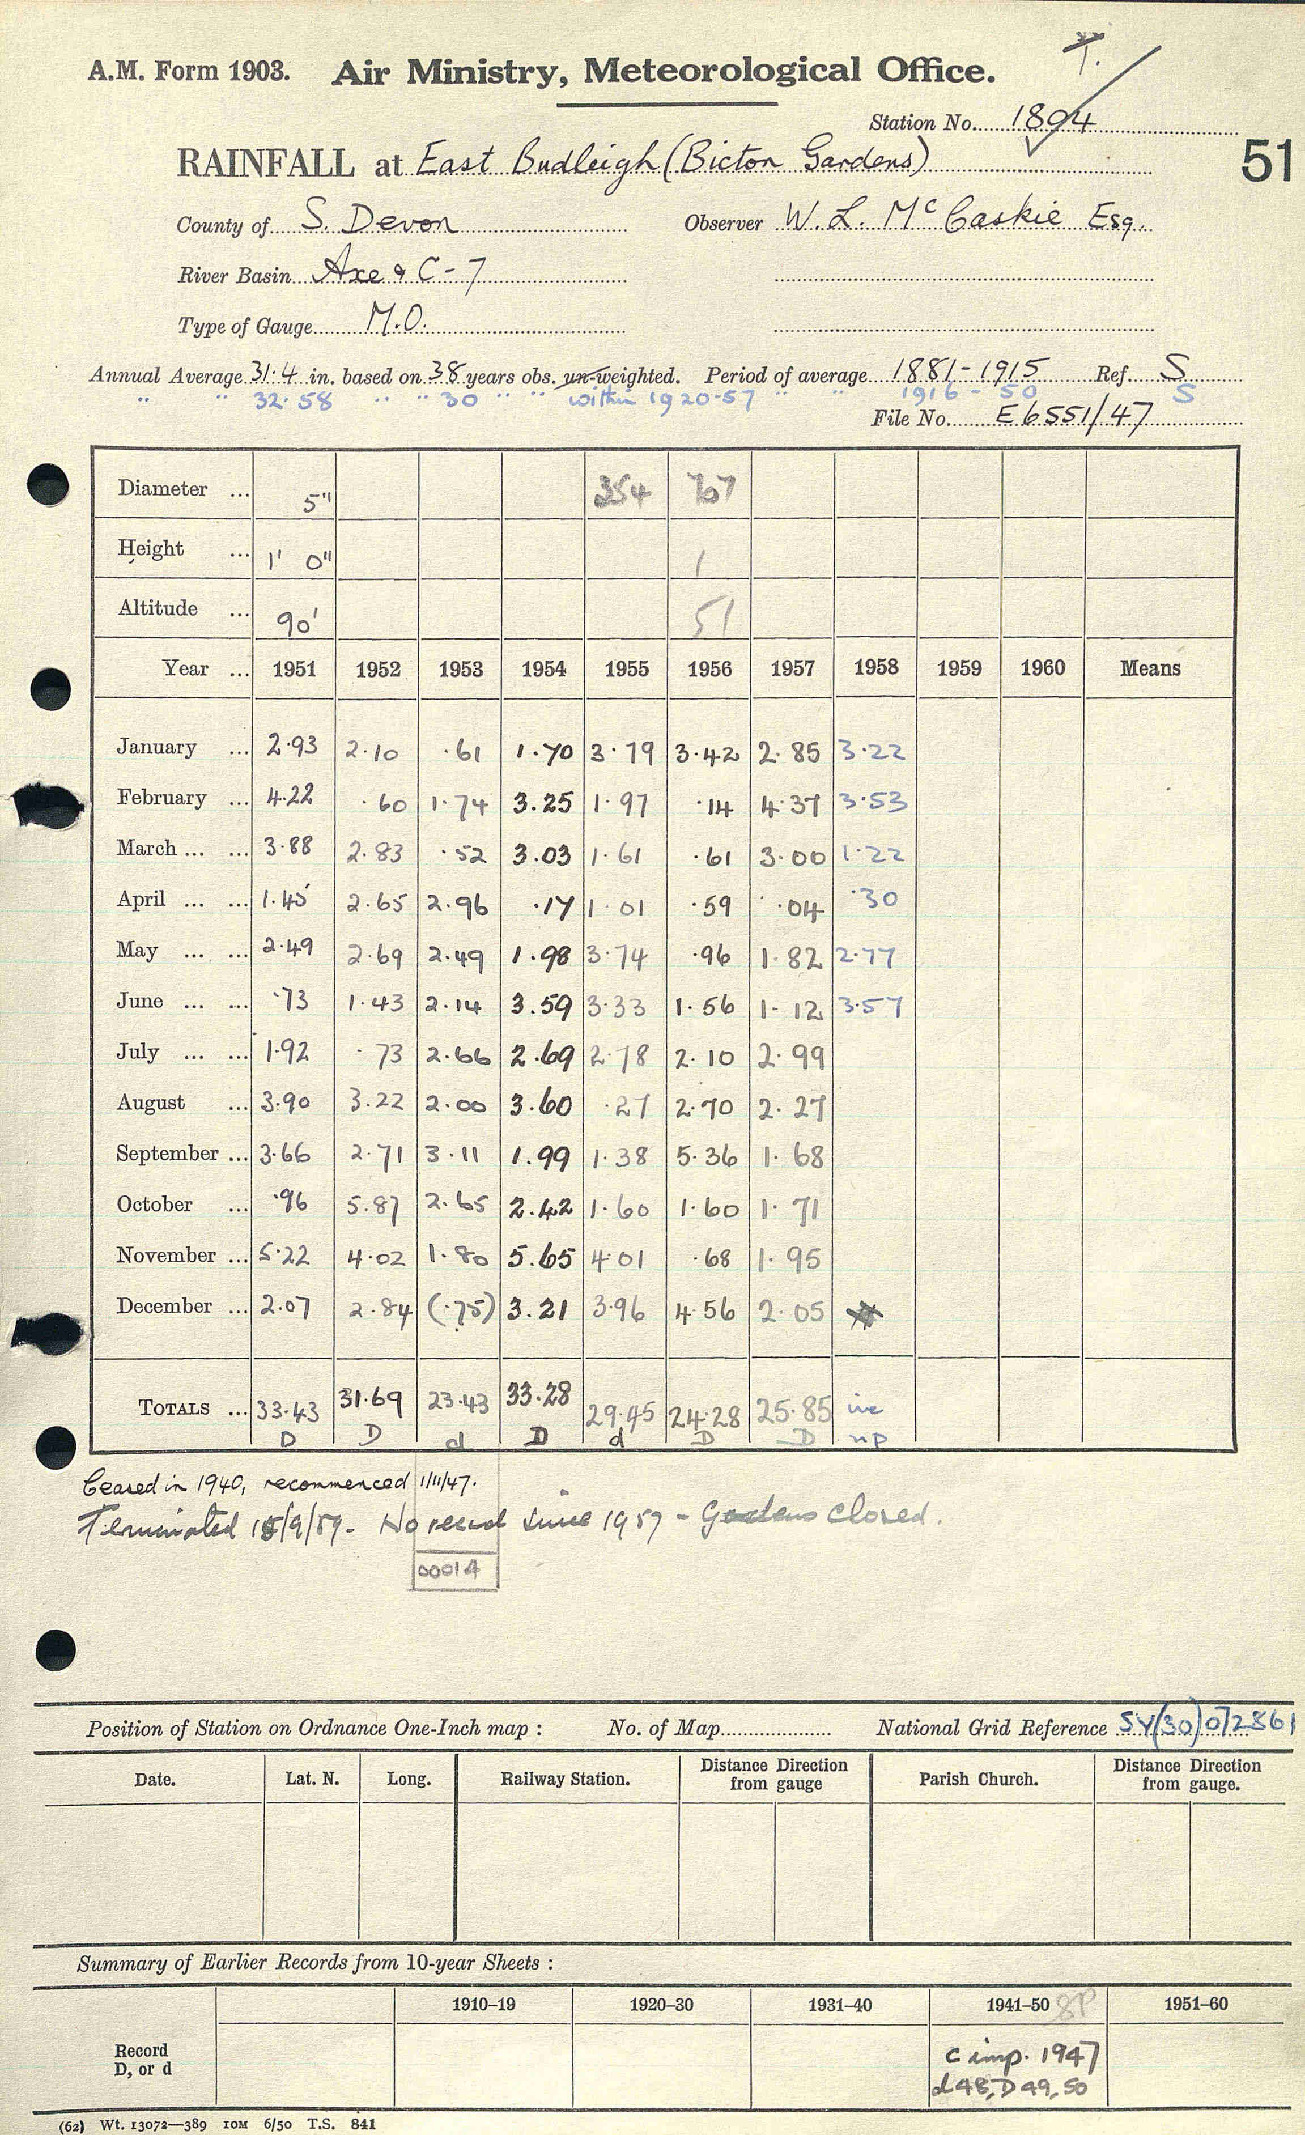 T.
A.M. Form 1903. Air Ministry, Meteorological Office.
Station No. 1804
RAINFALL at East Budleigh (Bicton Gardens) 51
County of S. Devon Observer W. L. McCaskie Esq.
River Basin Axe & C-7
Type of Gauge M.O.
Annual Average 31.4 in. based on 38 years obs. un-weighted. Period of average 1881-1915 Ref. S
" " 32.58 " " 30 " " within 1920-57 " " 1916-50 S
File No. E6551/47
Diameter ... 5" 354 767
Height ... 1' 0" 1
Altitude ... 90' 51
Year ... 1951 1952 1953 1954 1955 1956 1957 1958 1959 1960 Means
January ... 2.93 2.10 .61 1.70 3.79 3.42 2.85 3.22
February ... 4.22 .60 1.74 3.25 1.97 .14 4.37 3.53
March ... ... 3.88 2.83 .52 3.03 1.61 .61 3.00 1.22
April ... ... 1.45 2.65 2.96 .17 1.01 .59 .04 .30
May ... ... 2.49 2.69 2.49 1.98 3.74 .96 1.82 2.77
June ... ... .73 1.43 2.14 3.59 3.33 1.56 1.12 3.57
July ... ... 1.92 .73 2.66 2.69 2.78 2.10 2.99
August ... 3.90 3.22 2.00 3.60 .27 2.70 2.27
September ... 3.66 2.71 3.11 1.99 1.38 5.36 1.68
October ... .96 5.87 2.65 2.42 1.60 1.60 1.71
November ... 5.22 4.02 1.80 5.65 4.01 .68 1.95
December ... 2.07 2.84 (.75) 3.21 3.96 4.56 2.05
TOTALS ... 33.43 31.69 23.43 33.28 29.45 24.28 25.85 inc
D D d D d D D np
Ceased in 1940, recommenced 1/11/47.
Terminated 15/9/59 - No record since 1957 - Gardens closed.
00014
Position of Station on Ordnance One-Inch map : No. of Map National Grid Reference SY(30)072861
Date. Lat. N. Long. Railway Station. Distance from gauge Direction Parish Church. Distance from gauge. Direction
Summary of Earlier Records from 10-year Sheets :
1910-19 1920-30 1931-40 1941-50 SP 1951-60
Record D, or d
C imp. 1947
d48, D 49, 50
(62) Wt. 13072—389 10M 6/50 T.S. 841